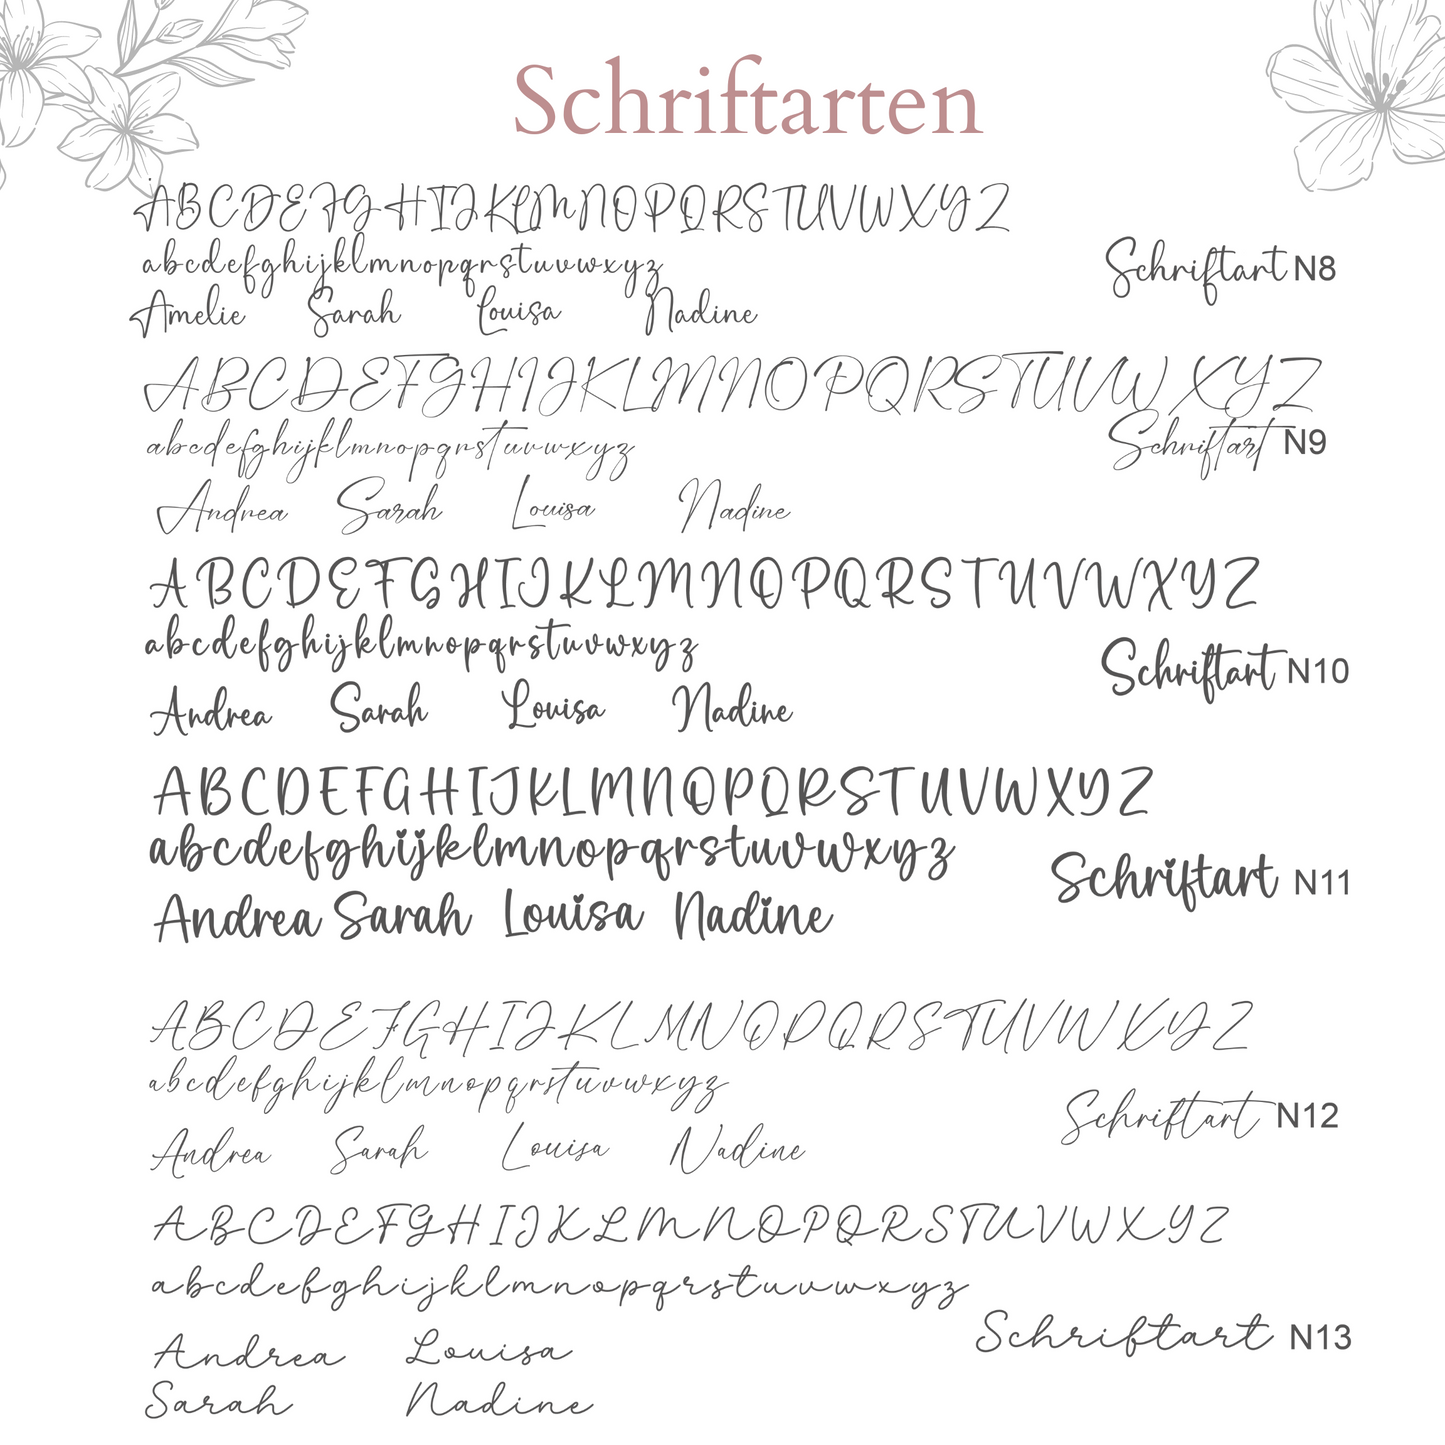 Schriftarten
ABCDEFGHIJKLMNOPQRSTUVWXYZ
abcdefghijklmnopqrstuvwxyz
Schriftart N8
Amelie Sarah Louisa Nadine
ABCDEFGHIJKLMNOPQRSTUVWXYZ
abcdefghijklmnopqrstuvwxyz
Schriftart N9
Andrea Sarah Louisa Nadine
ABCDEFGHIJKLMNOPQRSTUVWXYZ
abcdefghijklmnopqrstuvwxyz
Schriftart N10
Andrea Sarah Louisa Nadine
ABCDEFGHIJKLMNOPQRSTUVWXYZ
abcdefghijklmnopqrstuvwxyz
Schriftart N11
Andrea Sarah Louisa Nadine
ABCDEFGHIJKLMNOPQRSTUVWXYZ
abcdefghijklmnopqrstuvwxyz
Schriftart N12
Andrea Sarah Louisa Nadine
ABCDEFGHIJKLMNOPQRSTUVWXYZ
abcdefghijklmnopqrstuvwxyz
Schriftart N13
Andrea Louisa
Sarah Nadine